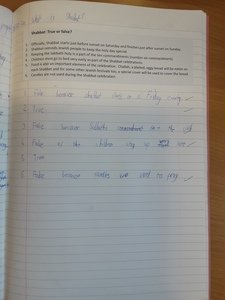 what is Shabbat?
Shabbat: True or False?
1 Officially, Shabbat starts just before sunset on Saturday and finishes just after sunset on Sunday
2 Shabbat reminds Jewish people to keep the holy day special
3 Keeping the Sabbath holy is part of the ten commandments (number six commandment)
4 Children must go to bed very early as part of the Shabbat celebrations.
5 Food is also an important element of the celebration. Challah, a plaited, eggy bread will be eaten on
each Shabbat and for some other Jewish festivals too, a special cover will be used to cover the bread
6 Candles are not used during the Shabbat celebration.
False because shabbat on a Friday evening
2 True
3 False because Sabbath is the
4 False as the children up
5 True
6 False because candles are used to